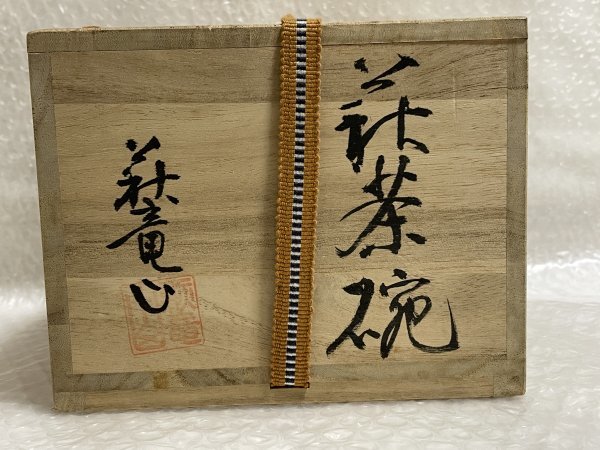 萩茶碗
萩竜山